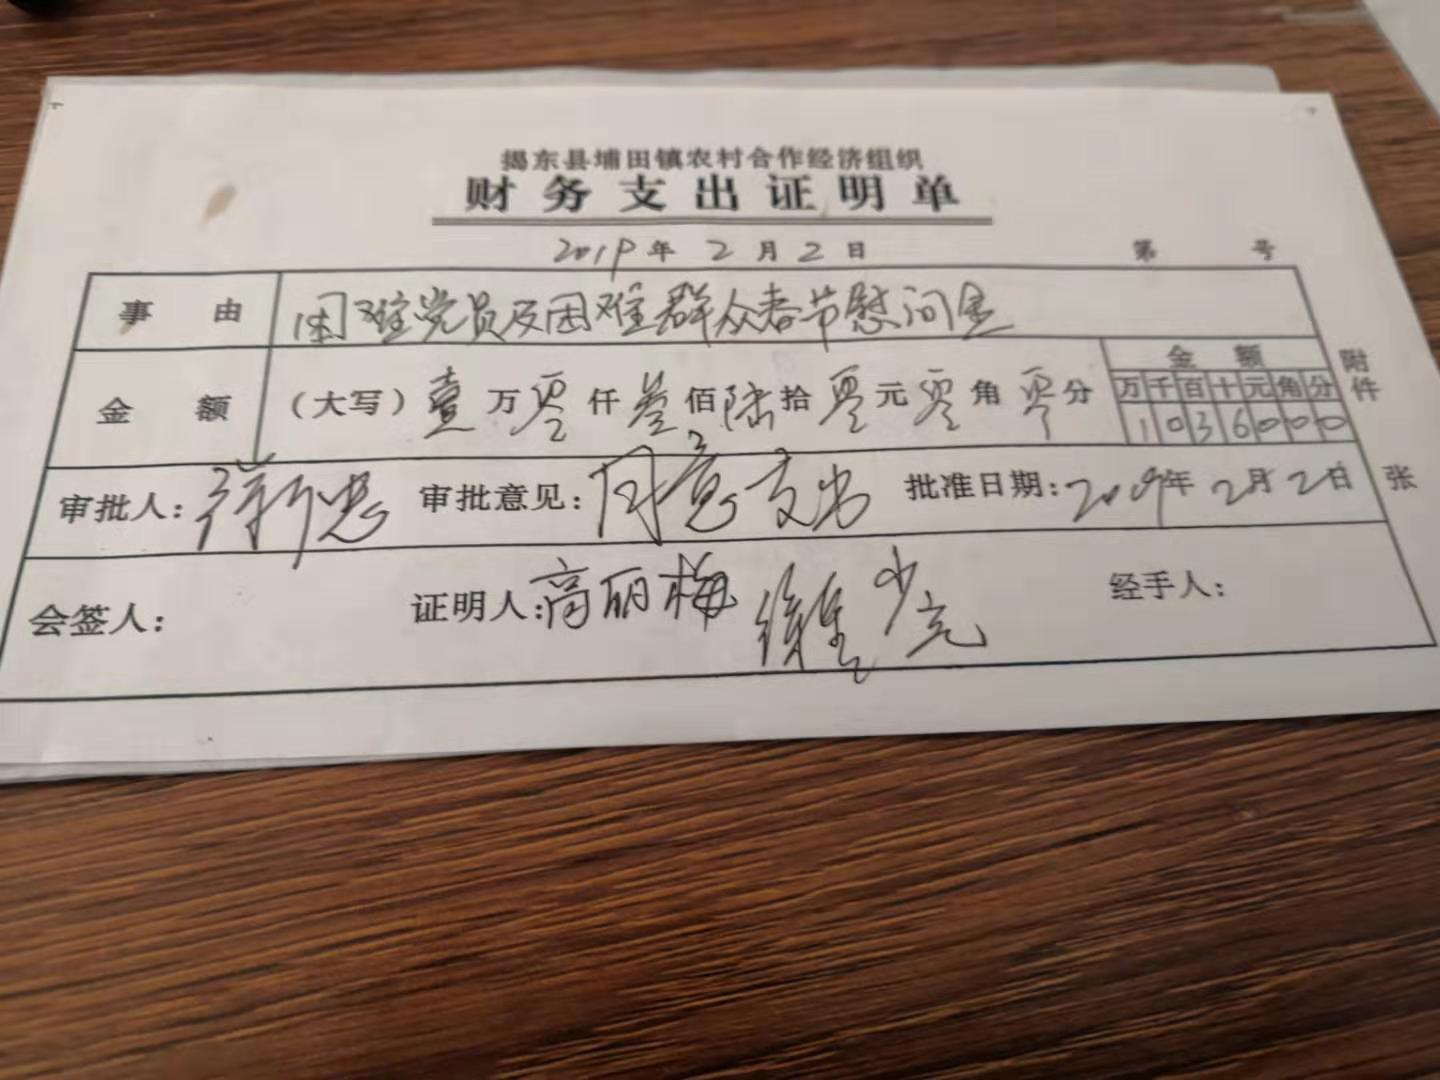 揭东县埔田镇农村合作经济组织
财务支出证明单
2019年2月2日 第 号
事由 困难党员及困难群众春节慰问金
金额 (大写)壹万零仟叁佰陆拾零元零角零分
金额
万千百十元角分
1036000
附件 张
审批人: 审批意见:同意支出 批准日期:2019年2月2日
会签人: 证明人:高丽梅 少 经手人: